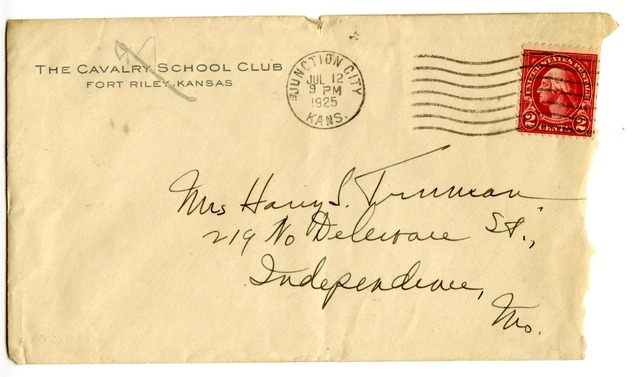 THE CAVALRY SCHOOL CLUB
FORT RILEY, KANSAS
JUNCTION CITY
JUL 12
9 PM
1925
KANS.
UNITED STATES POSTAGE
2 CENTS 2
Mrs Harry S. Truman
219 No Deleware St.,
Independence,
Mo.